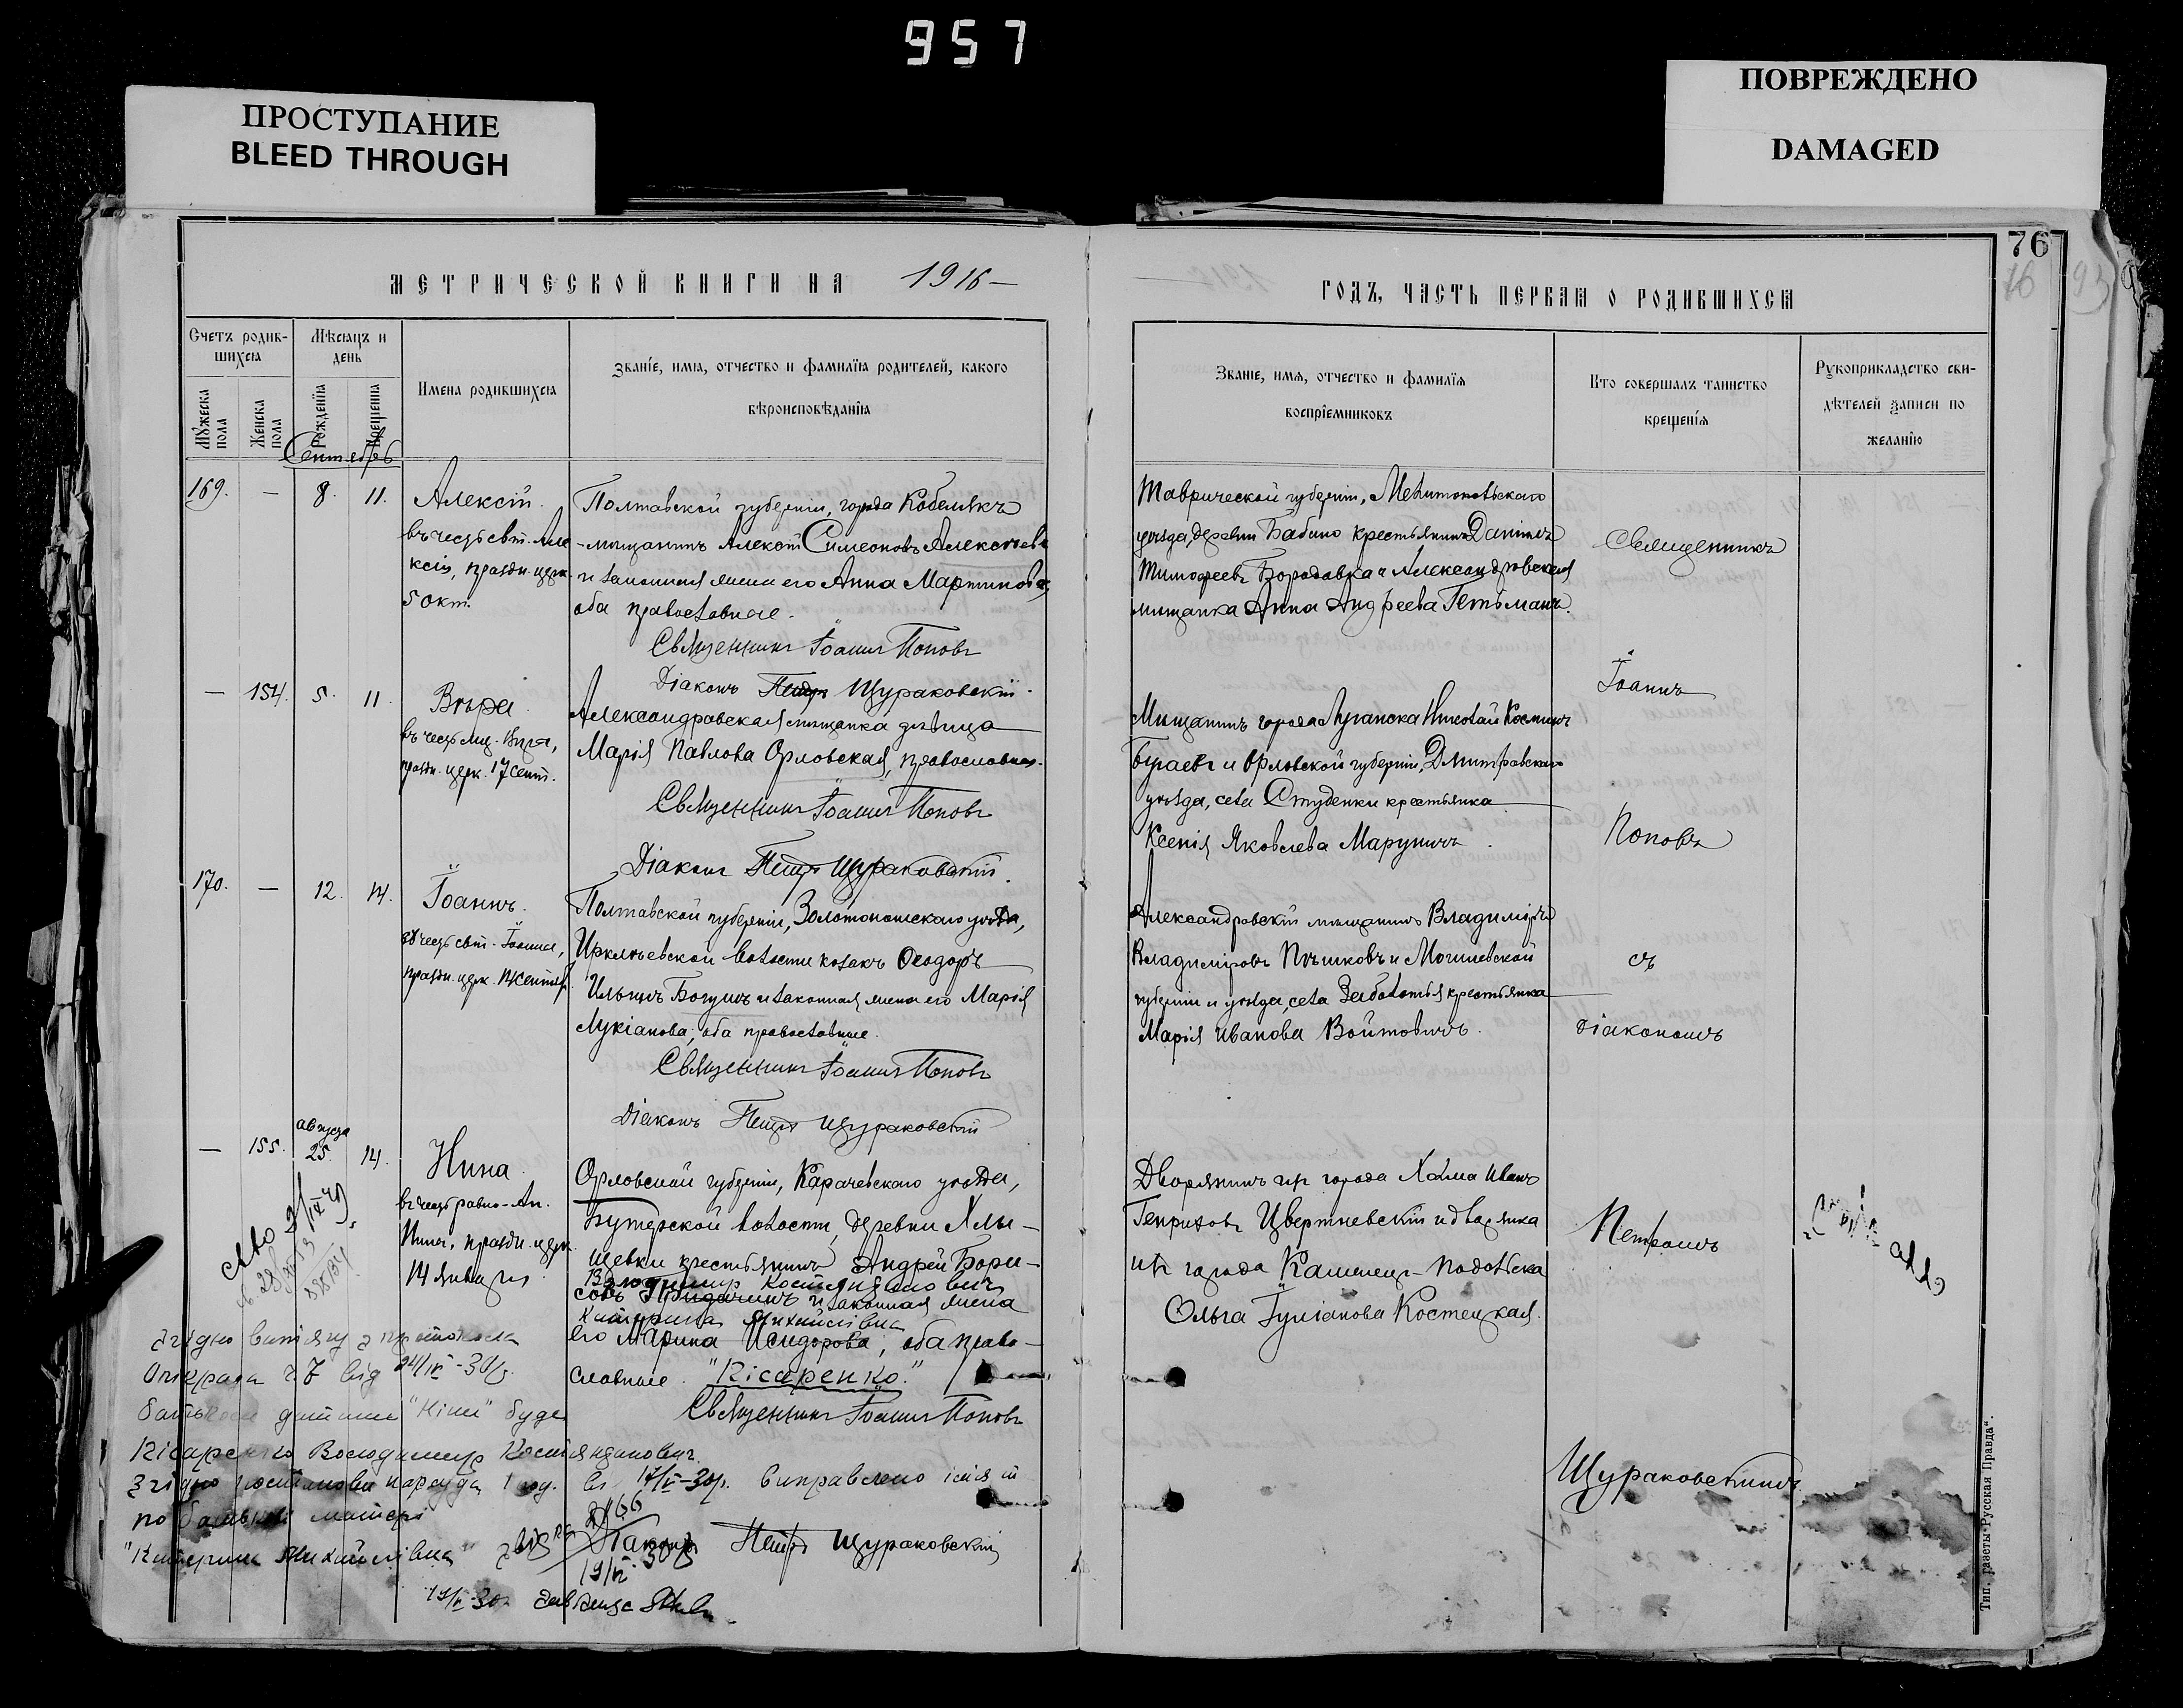 957
ПРОСТУПАНИЕ
BLEED THROUGH
ПОВРЕЖДЕНО
DAMAGED
76
76
93
МЕТРИЧЕСКОЙ КНИГИ НА 1916
ГОДЪ, ЧАСТЬ ПЕРВАЯ О РОДИВШИХСЯ
Счетъ родив-
шихся
Мужеска
пола
Женска
пола
Мѣсяцъ и
день
Рожденія
Крещенія
Имена родившихся
Званіе, имя, отчество и фамилія родителей, какого
вѣроисповѣданія
Званіе, имя, отчество и фамилія
воспріемниковъ
Кто совершалъ таинство
крещенія
Рукоприкладство сви-
дѣтелей записи по
желанію
Сентябрь
169. — 8. 11. Алексій.
въ честь свт. Але
ксія, праздн. церк.
5 окт.
Полтавской губерніи, города Кобелякъ
мѣщанинъ Алексій Симеоновъ Алексѣевъ
и законная жена его Анна Мартинова,
оба православные.
Священникъ Іоаннъ Поповъ
Діаконъ Петръ Щураковскій.
Таврической губерніи, Мелитопольскаго
уѣзда, деревни Бабино крестьянинъ Даніилъ
Тимофеевъ Бородавка и Александровская
мѣщанка Анна Андреева Гетьманъ.
— 154. 5. 11 Вѣра.
въ честь мц. Вѣры,
праздн. церк. 17 сент.
Александровская мѣщанка дѣвица
Марія Павлова Орловская, православная.
Священникъ Іоаннъ Поповъ
Діаконъ Петръ Щураковскій.
Мѣщанинъ города Луганска Николай Косминъ
Бугаевъ и Орловской губерніи, Дмитровскаго
уѣзда, села Студенки крестьянка
Ксенія Яковлева Маруничъ.
170. — 12. 14. Іоаннъ.
въ честь свт. Іоанна,
праздн. церк. 14 сентяб.
Полтавской губерніи, Золотоношскаго уѣзда,
Ирклѣевской волости козакъ Ѳеодоръ
Ильинъ Богушъ и законная жена его Марія
Лукіанова, оба православные.
Священникъ Іоаннъ Поповъ
Діаконъ Петръ Щураковскій
Александровскій мѣщанинъ Владиміръ
Владиміровъ Пѣшковъ и Могилевской
губерніи и уѣзда, села Заболотья крестьянка
Марія Иванова Войтовичъ.
— 155. августа 25. 14. Нина.
въ честь равно-Ап.
Нины, праздн. церк.
14 января
Орловской губерніи, Карачевскаго уѣзда,
Бутерской волости, деревни Хлы-
щевки крестьянинъ Андрей Бори-
Володимир Костянтинович
совъ и законная жена
Катерина Михайлівна
его Марина Исидорова, оба право-
славные. "Кісаренко."
Священникъ Іоаннъ Поповъ
Діаконъ Петръ Щураковскій
Дворянинъ изъ города Холма Иванъ
Генриховъ Цвертневскій и дворянка
изъ города Каменецъ-Подольска
Ольга Іуліанова Костецкая.
Священникъ
Іоаннъ
Поповъ
съ
діакономъ
Петромъ
Щураковскимъ.
Згідно витягу з протокола
ч. 7 від 24/IV-30р.
батьком дитини "Ніни" буде
Кісаренко Володимир Костянтинович.
Згідно постанови нарсуда 17/V-30р. виправлено імя й
по батькові матері
"Катерина Михайлівна"
19/VI-30р
Тип. газеты „Русская Правда“.